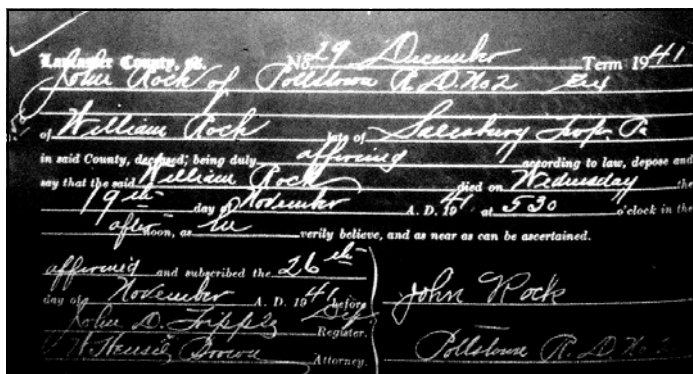 Lancaster County, ss. No 29 December Term 1941
John Rock of Pottstown R.D. No 2 Ex
of William Rock late of Salisbury Twp. Pa
in said County, deceased, being duly affirming according to law, depose and
say that the said William Rock died on Wednesday the
19th day of November A. D. 1941 at 530 o'clock in the
after noon, as he verily believe, and as near as can be ascertained.
affirmed and subscribed the 26th
day of November A. D. 1941 before John Rock
John D. Register.
Brown Attorney. Pottstown R.D. No 2